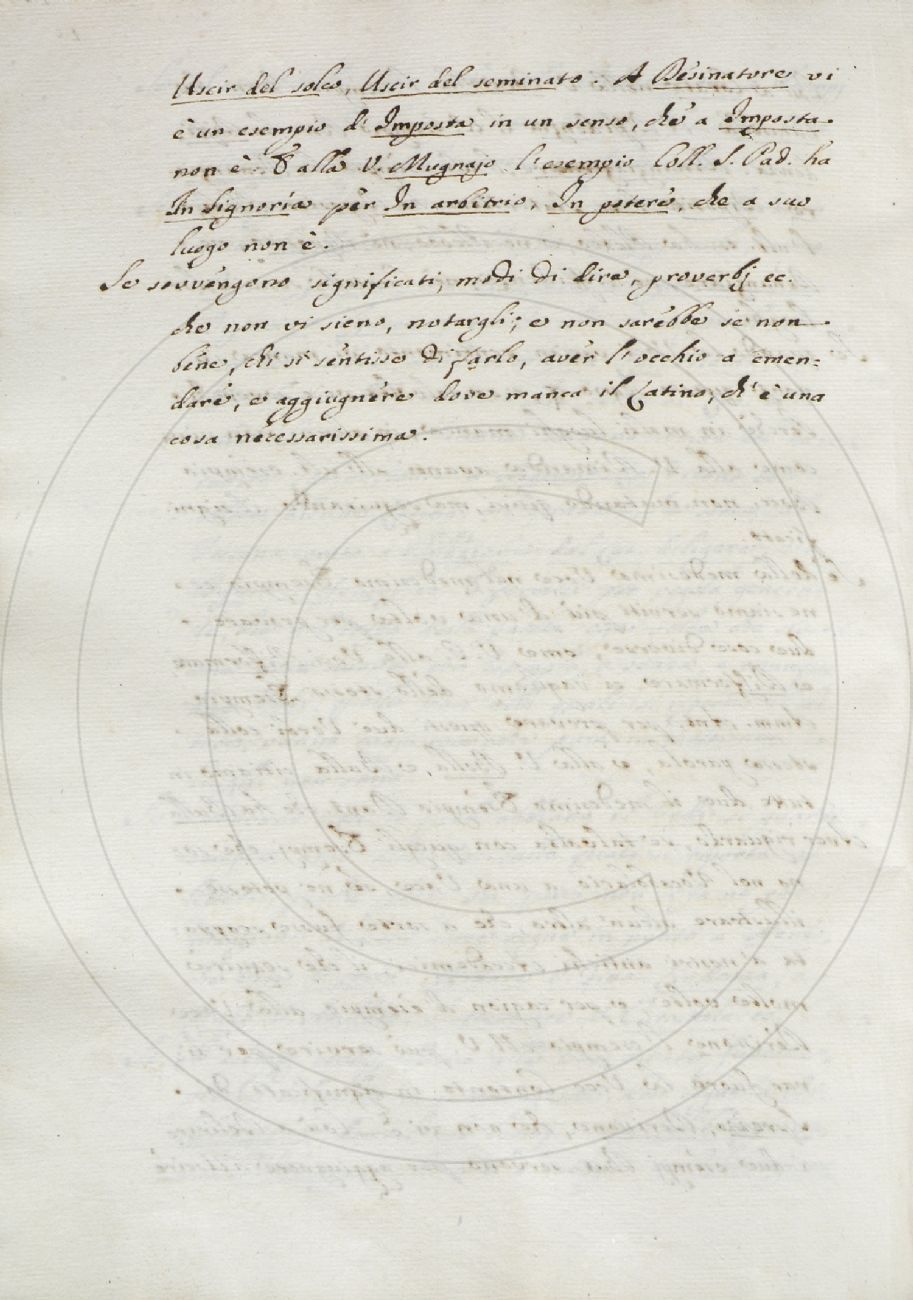 Uscir del solco, Uscir del seminato. A Desinatore vi
è un esempio d'Imposta in un senso, che a Imposta
non è. E alla V. Mugnajo l'esempio Coll. S. Pad. ha
In signoria per In arbitrio, In potere, che a suo
luogo non è.
Se sovvengono significati, modi di dire, proverbj ec.
che non vi sieno, notargli; e non sarebbe se non
bene, chi si sentisse di farlo, aver l'occhio a emen-
dare, e aggiugnere dove manca il Latino, ch'è una
cosa necessarissima.